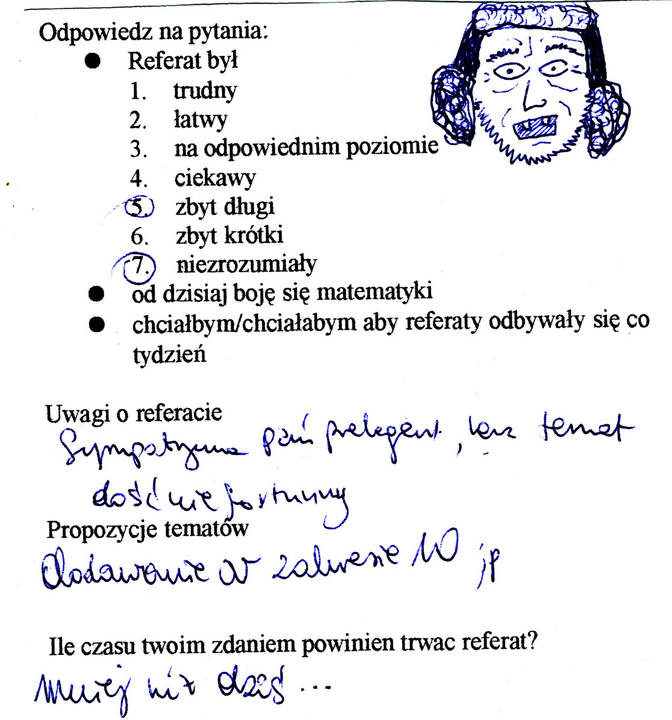 Odpowiedz na pytania:
● Referat był
1. trudny
2. łatwy
3. na odpowiednim poziomie
4. ciekawy
5. zbyt długi
6. zbyt krótki
7. niezrozumiały
● od dzisiaj boję się matematyki
● chciałbym/chciałabym aby referaty odbywały się co
tydzień
Uwagi o referacie
Sympatyczna pani prelegent, lecz temat
dość nie fortunny
Propozycje tematów
Dodawanie w zakresie 10 ;P
Ile czasu twoim zdaniem powinien trwac referat?
Mniej niż dziś ...